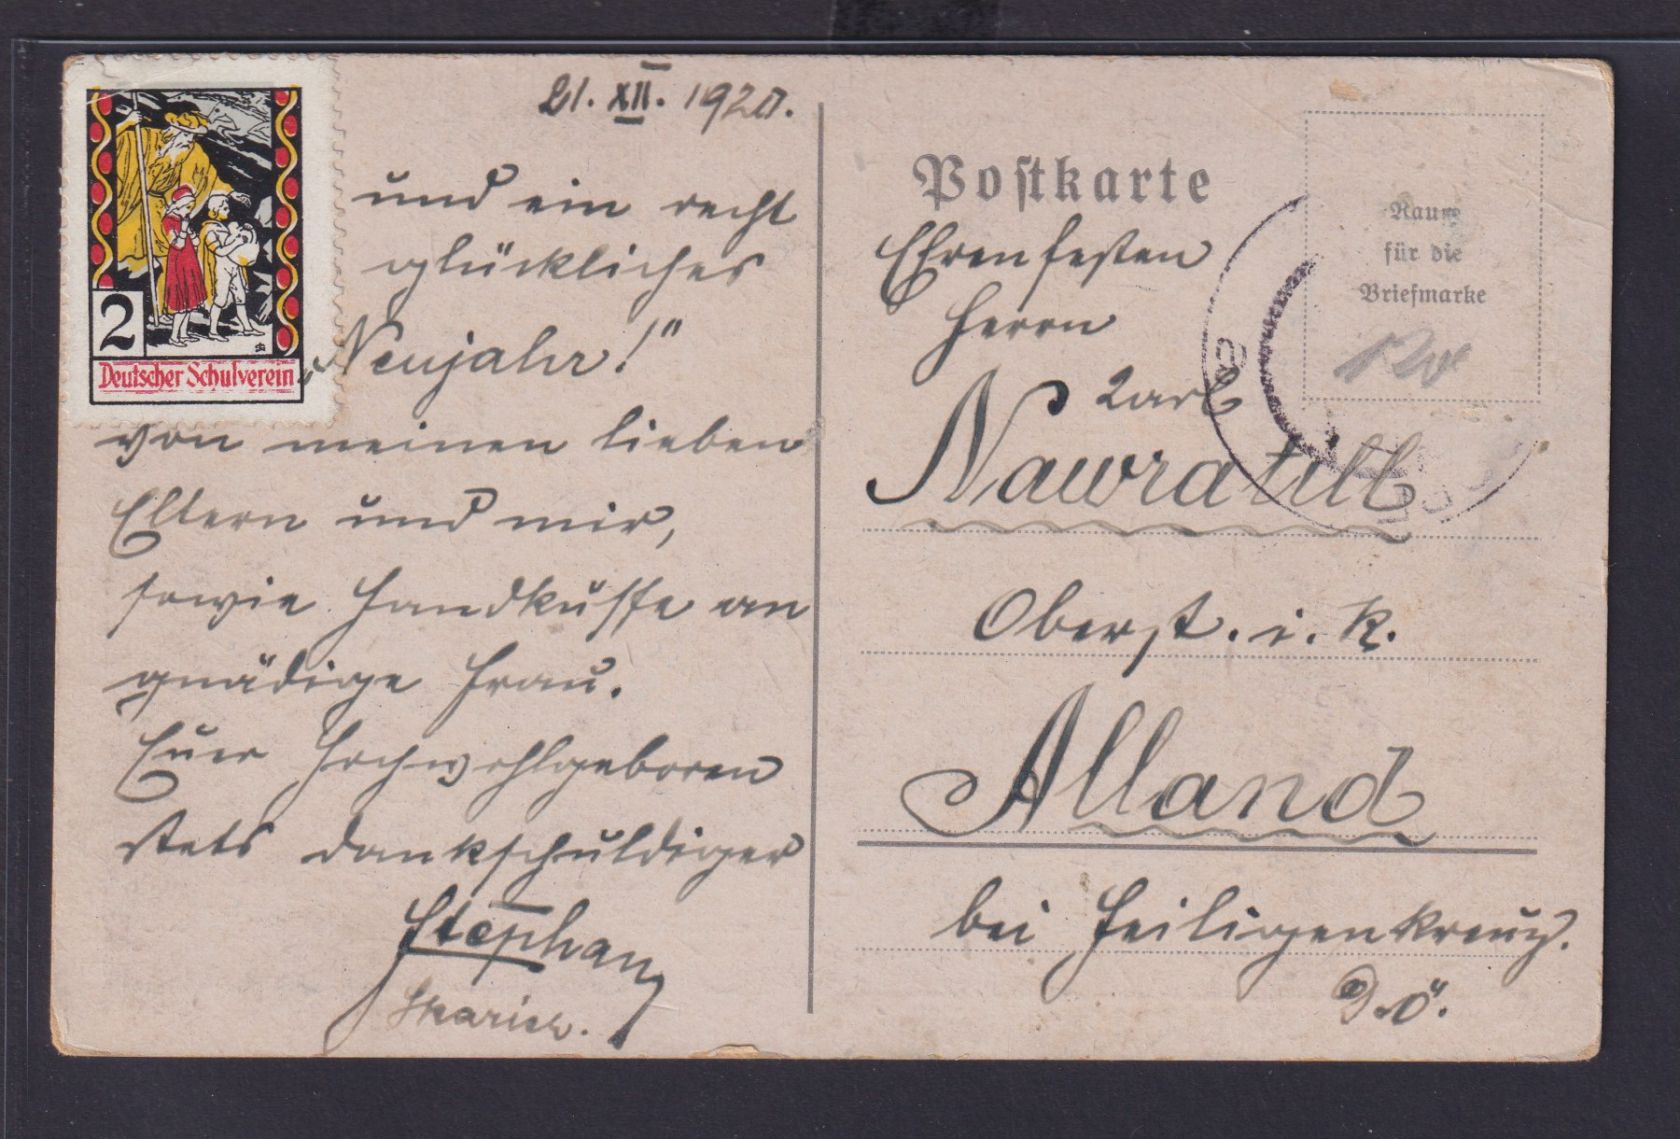 21. XII. 1920.
und ein recht
glückliches
„Neujahr!“
von meinen lieben
Eltern und mir,
sowie Handküsse an
gnädige Frau.
Euer Hochwohlgeboren
stets dankschuldiger
Stephan
2
Deutscher Schulverein
Postkarte
Raum
für die
Briefmarke
Ehrenfesten
Herrn
Karl
Nawratill
Oberst. i. R.
Alland
bei Heiligenkreuz.
N.Ö.